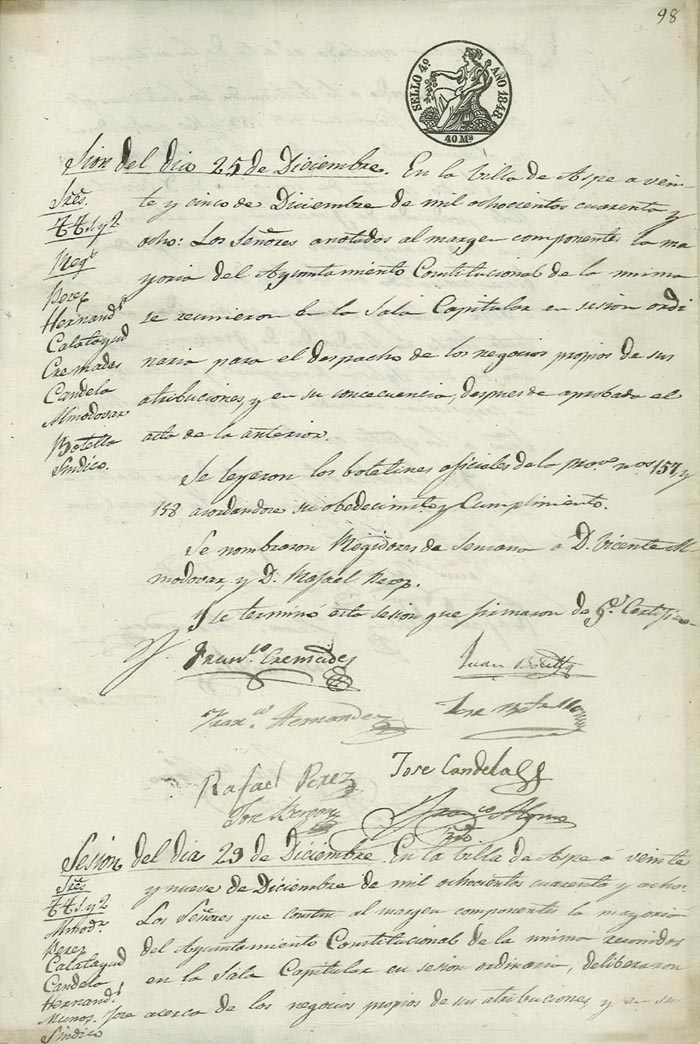 98
SELLO 4º AÑO 1848
40 Ms
Sion del dia 25 de Diciembre. En la Villa de Aspe a vein-
te y cinco de Diciembre de mil ochocientos cuarenta y
ocho: Los Señores anotados al margen componentes la ma
yoria del Ayuntamiento Constitucional de la mima
se reunieron en la Sala Capitular en sesion ordi
naria para el despacho de los negocios propios de sus
atribuciones, y en su concecuencia, despues de aprobada el
acta de la anterior.
Sres.
TT. 1 y 2
Regs
Perez
Hernands
Calatayud
Cremades
Candela
Almodovar
Botella
Sindico.
Se leyeron los boletines oficiales de la Prova nos 157 y
158 acordandose su obedecimto y Cumplimiento.
Se nombraron Regidores de Semana a D. Vicente Al
modovar, y D. Rafael Perez.
Y se terminó esta sesion que firmaron de qe Certifico-
Franco Cremades
Juan Botella
Franco Hernandez
Jose Botella
Rafael Perez
Jose Candela
Jose
Sesion del dia 29 de Diciembre. En la Villa de Aspe á veinte
y nueve de Diciembre de mil ochocientos cuarenta y ocho:
Los Señores que al margen componentes la mayoria
del Ayuntamiento Constitucional de la mima reunidos
en la Sala Capitular en sesion ordinaria, deliberaron
acerca de los negocios propios de sus atribuciones, y en su
Sres
TT. 1 y 2
Almodr
Perez
Calatayud
Candela
Hernands
Sindico